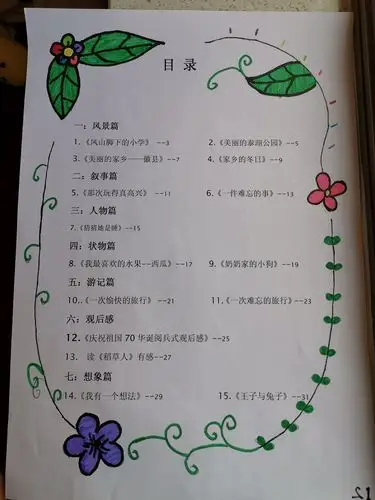 目录
一：风景篇
1.《凤山脚下的小学》--3 2.《美丽的泰湖公园》--5
3.《美丽的家乡——徽县》--7 4.《家乡的冬日》--9
二：叙事篇
5.《那次玩得真高兴》--11 6.《一件难忘的事》--13
三：人物篇
7.《猜猜她是谁》--15
四：状物篇
8.《我最喜欢的水果--西瓜》--17 9.《奶奶家的小狗》--19
五：游记篇
10..《一次愉快的旅行》--21 11.《一次难忘的旅行》--23
六：观后感
12.《庆祝祖国 70 华诞阅兵式观后感》--25
13. 读《稻草人》有感--27
七：想象篇
14.《我有一个想法》--29 15.《王子与兔子》--31